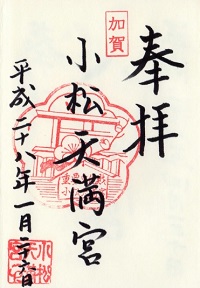 奉拝
加賀
小松天満宮
平成二十八年一月二十六日